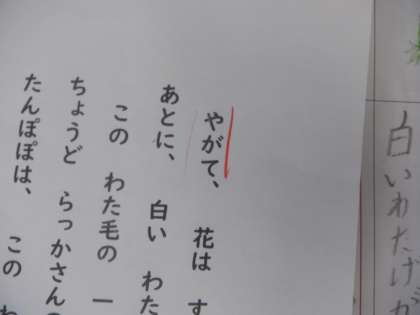 白いわたげが
やがて、 花は す
あとに、 白い わた
この わた毛の 一
ちょうど らっかさんの
たんぽぽは、 この わ